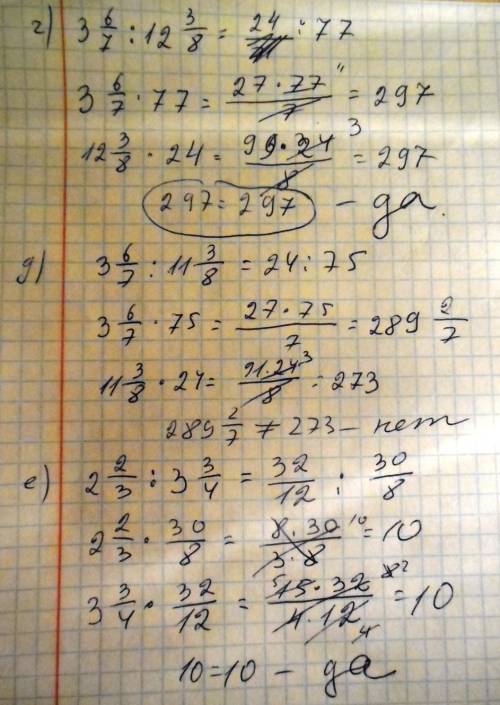 г) 3 6/7 : 12 3/8 = 24 : 77
3 6/7 · 77 = 27·77/7 11 = 297
12 3/8 · 24 = 99·24/8 3 = 297
297 = 297 – да.
д) 3 6/7 : 11 3/8 = 24 : 75
3 6/7 · 75 = 27·75/7 = 289 2/7
11 3/8 · 24 = 91·24/8 3 = 273
289 2/7 ≠ 273 – нет
е) 2 2/3 : 3 3/4 = 32/12 : 30/8
2 2/3 · 30/8 = 8·30/3·8 10 = 10
3 3/4 · 32/12 = 5 15·32/4·12 8 2 4 = 10
10 = 10 – да